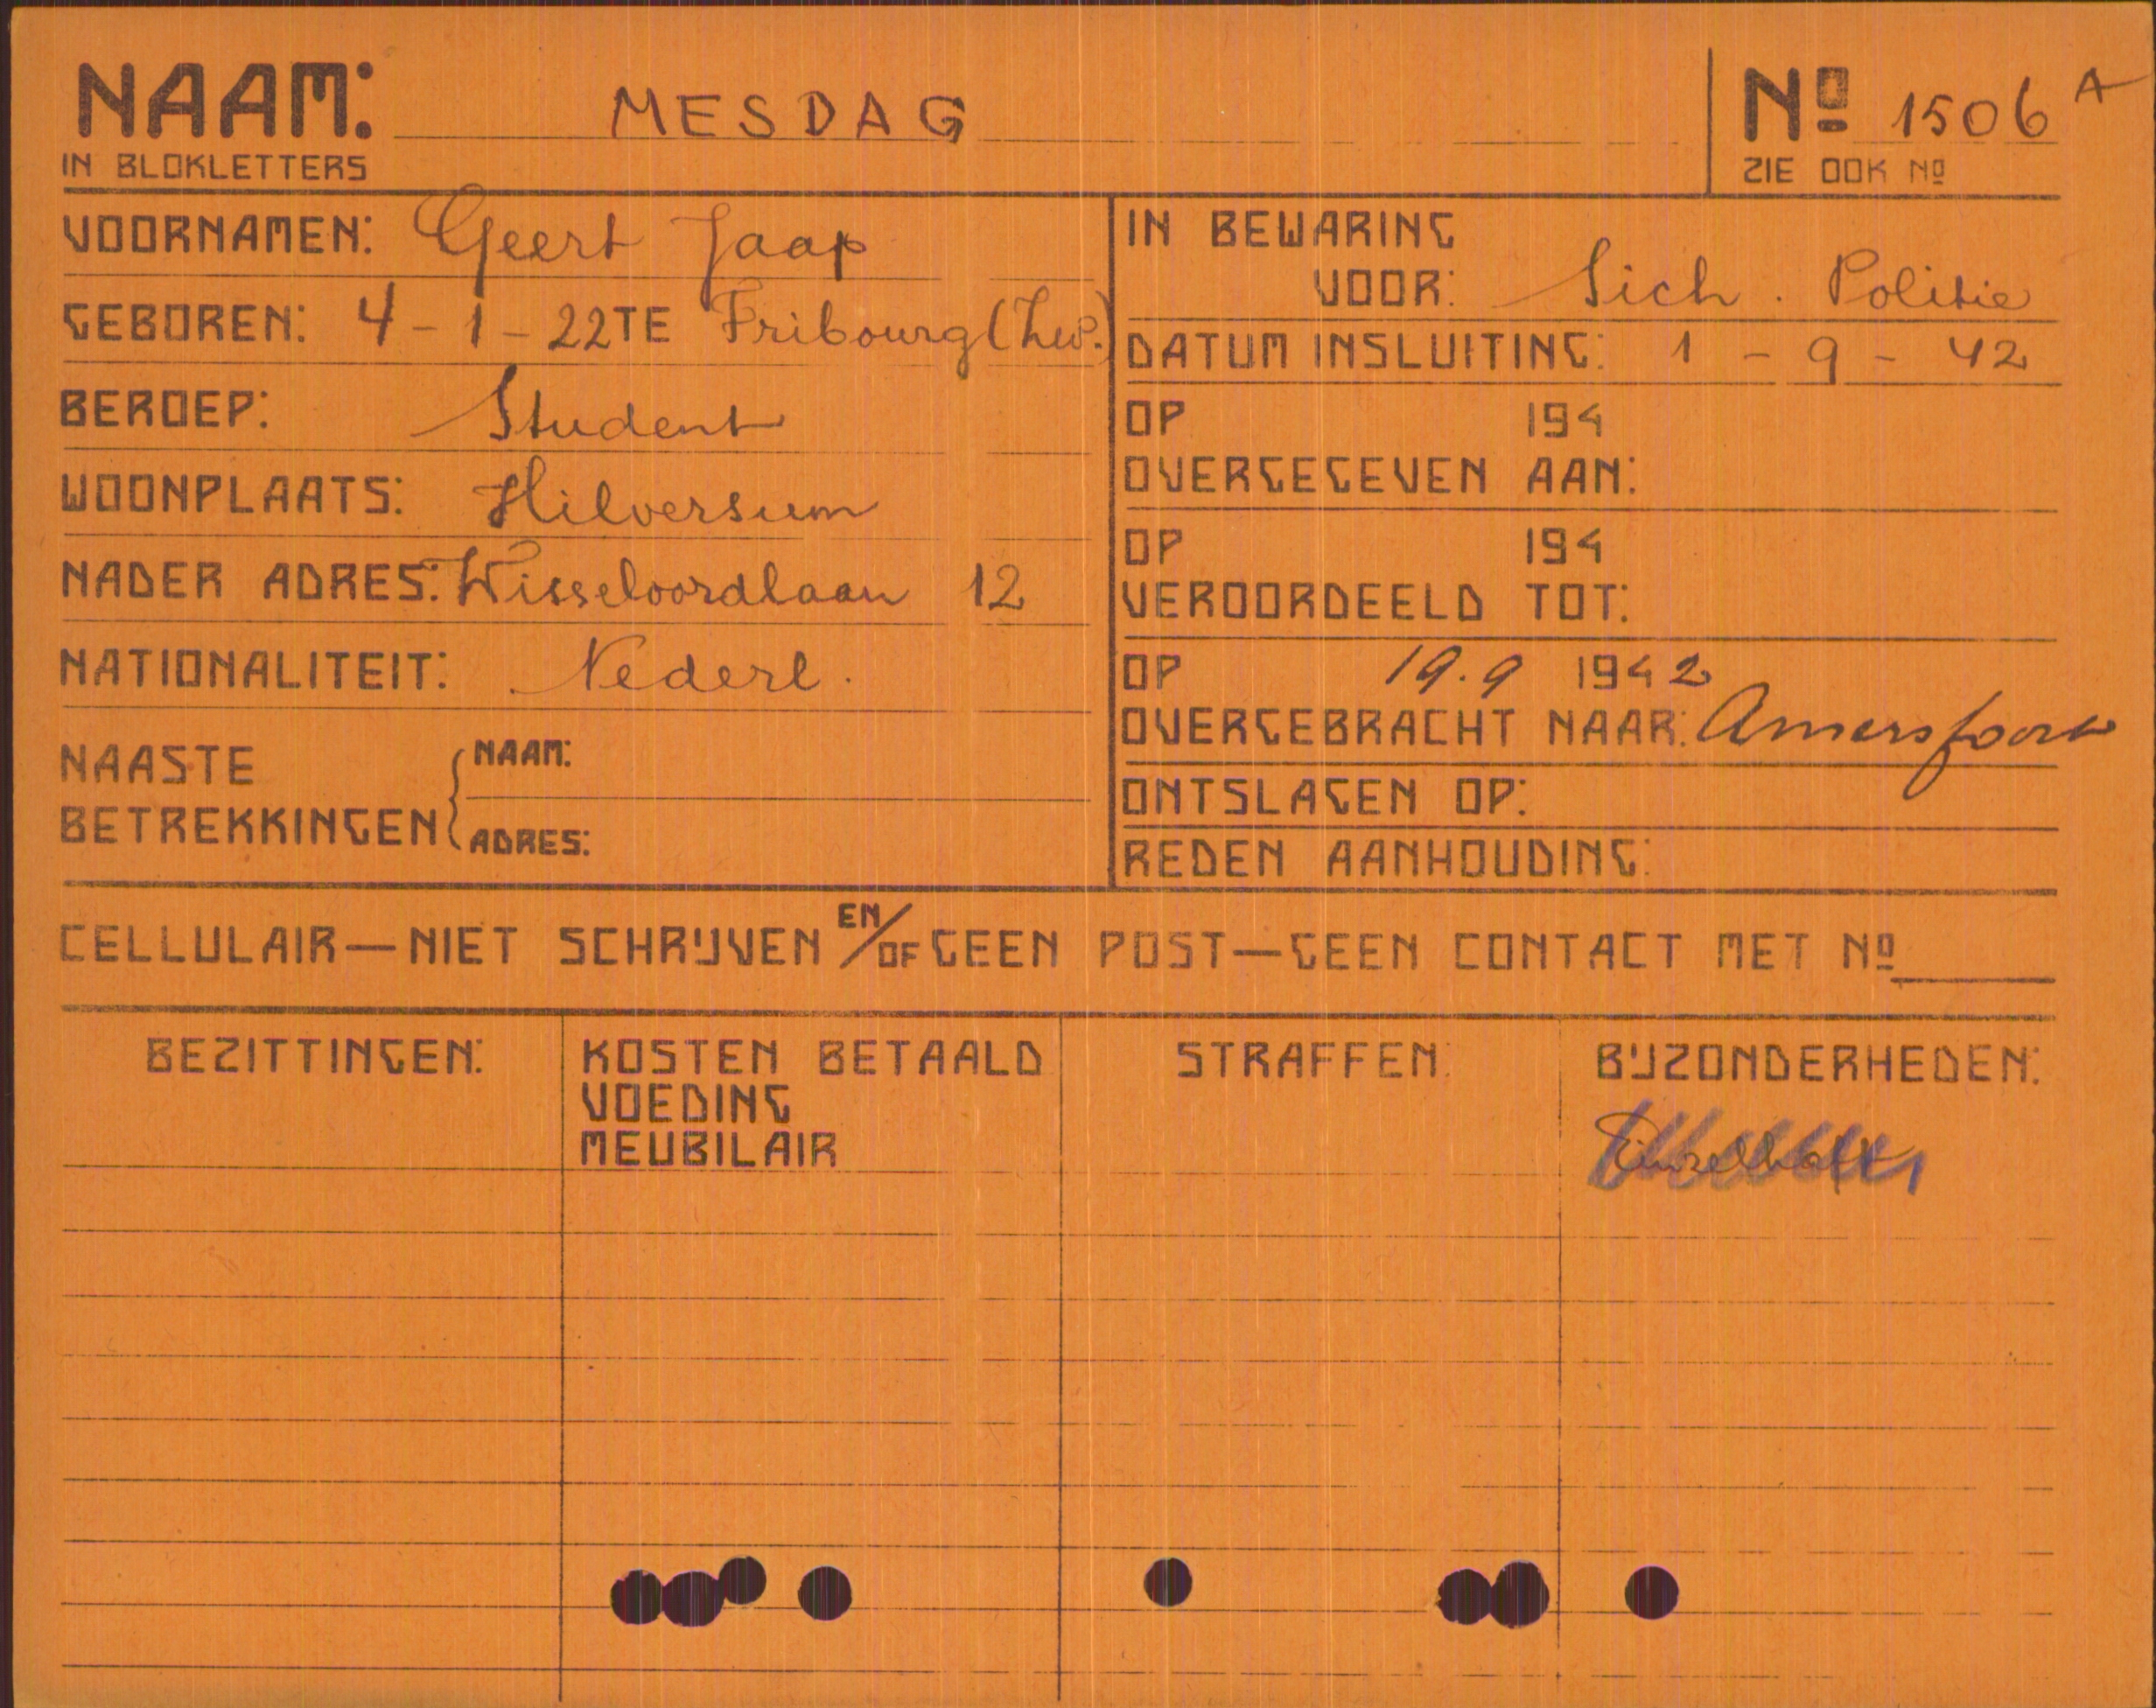 NAAM: MESDAG Nº 1506 A
IN BLOKLETTERS ZIE OOK Nº
VOORNAMEN: Geert Jaap
GEBOREN: 4-1-22 TE Fribourg (Zw.)
BEROEP: Student
WOONPLAATS: Hilversum
NADER ADRES: Wisseloordlaan 12
NATIONALITEIT: Nederl.
NAASTE BETREKKINGEN
NAAM:
ADRES:
IN BEWARING
VOOR: Sich. Politie
DATUM INSLUITING: 1 - 9 - 42
OP 194
OVERGEGEVEN AAN:
OP 194
VEROORDEELD TOT:
OP 19.9 1942
OVERGEBRACHT NAAR: Amersfoort
ONTSLAGEN OP:
REDEN AANHOUDING:
CELLULAIR—NIET SCHRIJVEN EN/OF GEEN POST—GEEN CONTACT MET Nº
BEZITTINGEN:
KOSTEN BETAALD
VOEDING
MEUBILAIR
STRAFFEN:
BIJZONDERHEDEN:
Einzelhaft